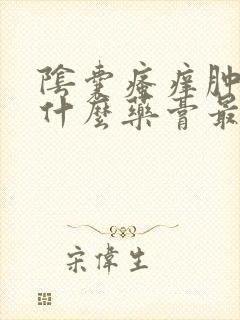 陰囊瘙痒肿
什麼藥膏最
宋偉生